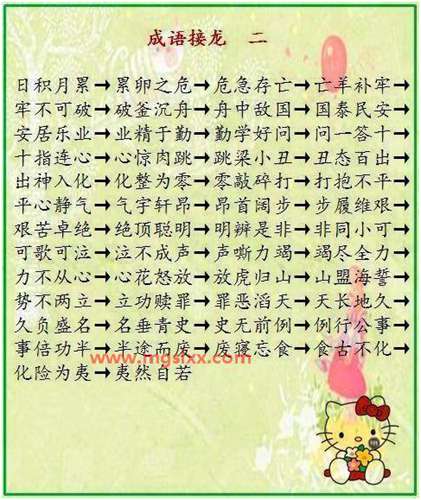 成语接龙 二
日积月累→累卵之危→危急存亡→亡羊补牢→
牢不可破→破釜沉舟→舟中敌国→国泰民安→
安居乐业→业精于勤→勤学好问→问一答十→
十指连心→心惊肉跳→跳梁小丑→丑态百出→
出神入化→化整为零→零敲碎打→打抱不平→
平心静气→气宇轩昂→昂首阔步→步履维艰→
艰苦卓绝→绝顶聪明→明辨是非→非同小可→
可歌可泣→泣不成声→声嘶力竭→竭尽全力→
力不从心→心花怒放→放虎归山→山盟海誓→
势不两立→立功赎罪→罪恶滔天→天长地久→
久负盛名→名垂青史→史无前例→例行公事→
事倍功半→半途而废→废寝忘食→食古不化→
www.mgsixx.com
化险为夷→夷然自若